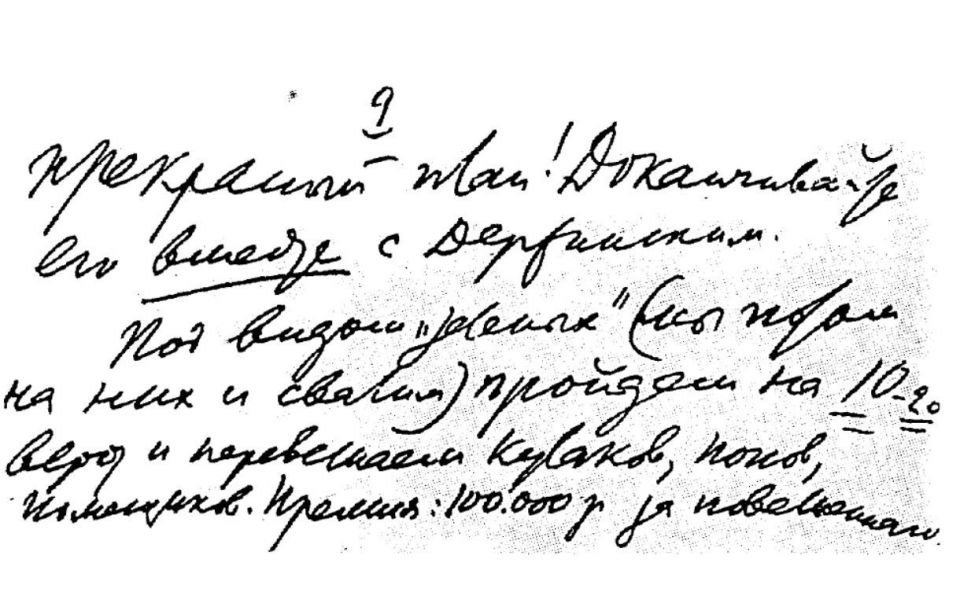 9
прекрасный план! Доканчивайте
его вместе с Дзержинским.
Под видом „зеленых" (мы потом
на них и свалим) пройдем на 10-20
верст и перевешаем кулаков, попов,
помещиков. Премия: 100.000 р за повешенного.